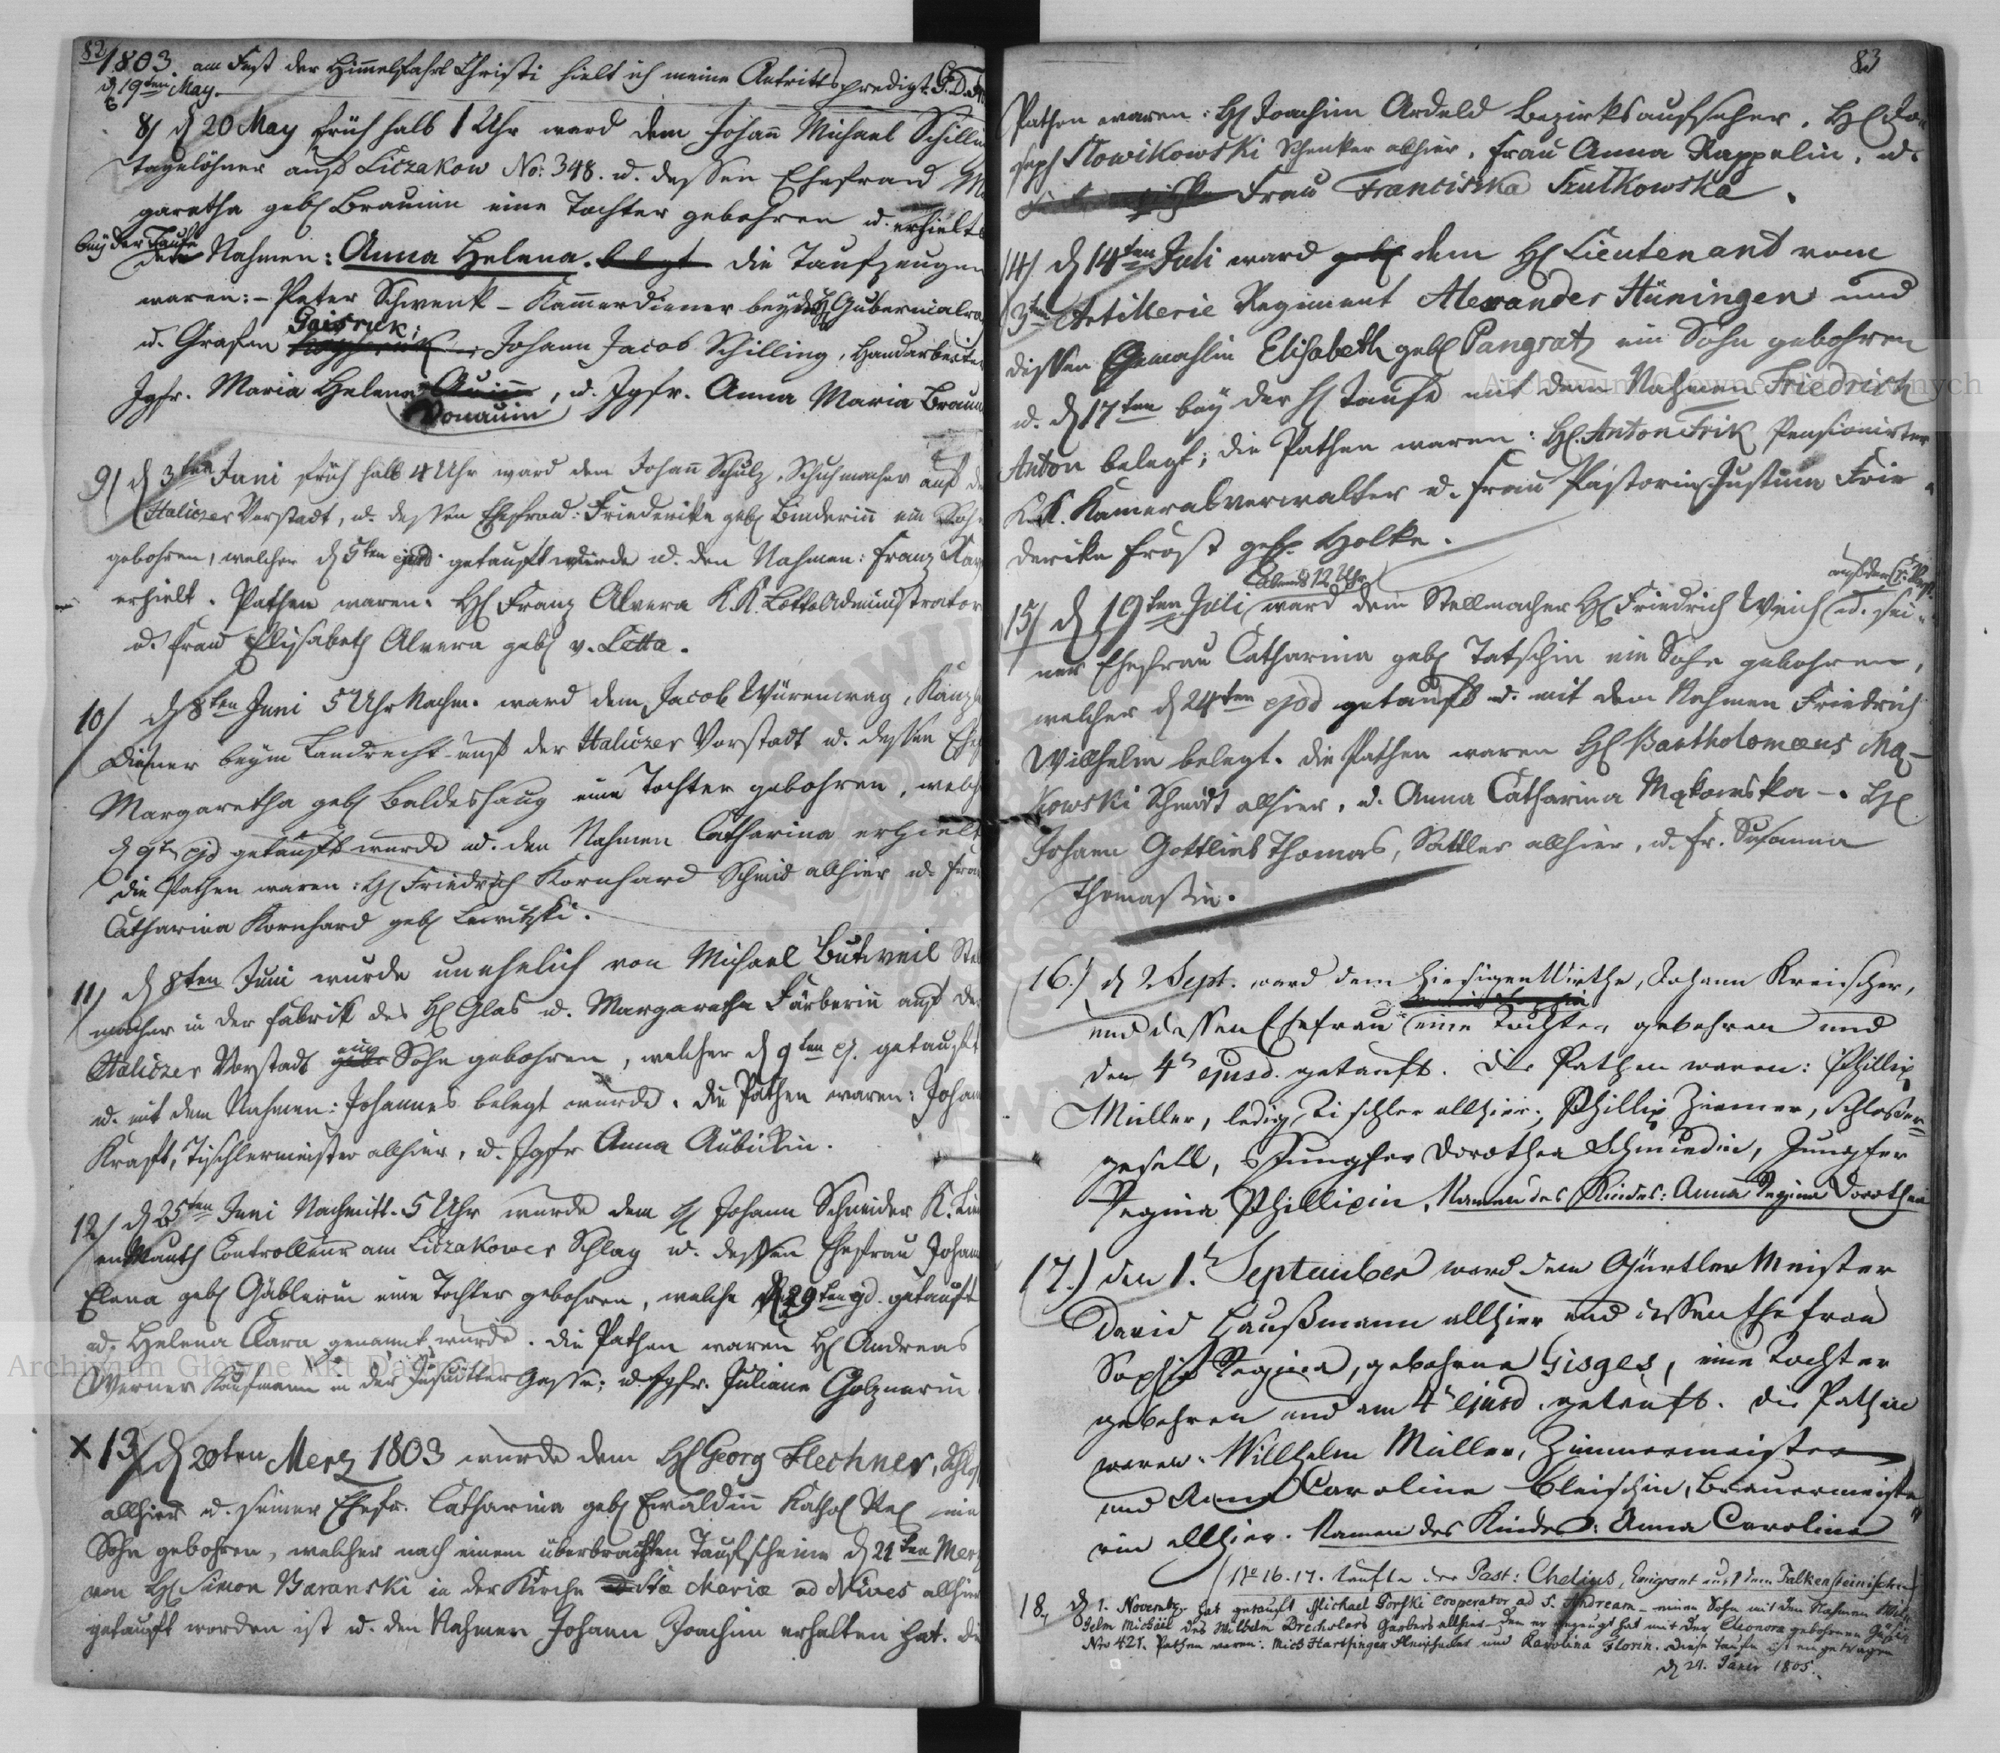 82
1803. am Fest der Himmelfahrt Christi hielt ich meine Antrittspredigt.
d 19ten May.
8) d 20 May früh halb 1 Uhr ward dem Johann Michael Schillin
Tagelöhner auß Liczakow No: 348. u. dessen Ehefrau Ma
garetha geb. Brauninn eine Tochter gebohren u. erhielt
bey der Taufe
den Nahmen: Anna Helena. die Taufzeugen
waren: – Peter Schwenk – Kammerdiener bey Gubernialra
Gaisruck;
u. Grafen Johann Jacob Schilling, Handarbeiter
Jgfr. Maria Helena , u. Jgfr. Anna Maria Braun
Donauin
9) d 3ten Juni früh halb 4 Uhr ward dem Johann Schulz, Schuhmacher auf d
Haliczer Vorstadt, u. dessen Ehefrau: Friederike geb. Binderinn ein Soh
gebohren, welcher d 5ten ejusd. getauft wurde u. den Nahmen: Franz
erhielt. Pathen waren. H Franz Alvera K.K. Lotto Administrator
u. Frau Elisabeth Alvera geb. v. Letta.
10) d 8ten Juni 5 Uhr Nachm. ward dem Jacob Würenweg, Kanzl
Diener beym Landrecht auß der Haliczer Vorstadt u. dessen Ehef
Margaretha geb. Baldeshaug eine Tochter gebohren, welch
d 9t ejd getauft wurde u. den Nahmen Catharina erhielt
die Pathen waren: H Friedrich Kornhard Schmid allhier u. Frau
Catharina Kornhard geb.
11) d 8ten Juni wurde unehelich von Michael Butweil Stel
macher in der Fabrik des H Glas u. Margaretha Färberin auß der
ein
Haliczer Vorstadt Sohn gebohren, welcher d 9ten ej. getauft
u. mit dem Nahmen: Johannes belegt wurde. die Pathen waren: Johan
Kraft, Tischlermeister allhier, u. Jgfr Anna Aubickin.
12) d 25ten Juni Nachmitt. 5 Uhr wurde dem H Johann Schneider K.
Mauth Controlleur am Liczakower Schlag u. dessen Ehefrau Johan
Elena geb. Gäblerin eine Tochter gebohren, welche d 29ten ejd. getauft
u. Helena Clara genannt wurde. die Pathen waren H Andreas
Werner Kaufmann in der Jesuitter Gasse; u. Jgfr. Juliana Golznerin
x 13) d 20ten Merz 1803 wurde dem H Georg Flechner, Schlos
allhier u. seiner Ehefr. Catharina geb. Ewaldinn Kathol Rel ein
Sohn gebohren, welcher nach einem überbrachten Taufscheine d 21ten Merz
von H Simon Baranski in der Kirche Stæ Mariæ ad Nives allhier
getauft worden ist u. den Nahmen Johann Joachim erhalten hat. di
83
Pathen waren: H Joachim Ardeld Bezirksaufseher, H Jo
seph Nowikowski Schenker allhier, Frau Anna Rappelin, u.
Frau Franciska Szutkowska.
14) d 14ten Juli ward dem H Lieutenant vom
3ten Artillerie Regiment Alexander Hüningen und
dessen Gemahlin Elisabeth geb. Pangratz ein Sohn gebohren
u. d 17ten bey der H Taufe mit dem Nahmen Friedrich
Anton belegt; die Pathen waren: H. Anton Frik Pensionirter
K.K. Kameralverwalter u. Frau Pastorin Justina Frie
derike Frost geb. Holke.
Abends 12 Uhr
15) d 19ten Juli ward dem Stellmacher H Friedrich Weich u. sei-
ner Ehefrau Catharina geb. Tatschin ein Sohn gebohren,
welcher d 24ten ejsd getauft u. mit dem Nahmen Friedrich
Willhelm belegt. die Pathen waren H Bartholomæus Mą-
kowski Schmidt allhier, u. Anna Catharina Mąkowska –. H
Johann Gottlieb Thomas, Sattler allhier, u. Fr. Susanna
Thomassin.
16.) d 2 Sept. ward dem hiesigen Wirthe, Johann Kreischer,
und dessen Ehefrau eine Tochter gebohren und
den 4t ejusd. getauft. Die Pathen waren: Phillip
Müller, ledig, Tischler allhier; Phillip Ziemer, Schlosser-
gesell, Jungfer Dorothea Schmiedin, Jungfer
Regina Phillipin. Namen des Kindes: Anna Regina Dorothea
17.) den 1.t September ward dem Gürtler Meister
David Haußmann allhier und dessen Ehefrau
Sophia Regina, gebohrne Gisges, eine Tochter
gebohren und am 4t ejusd. getauft. Die Pathen
waren. Willhelm Müller, Zimmermeister
und Anna Caroline Bleischin, Brauermeiste
rin allhier. Namen des Kindes: Anna Carolina
No 16. 17. taufte der Past: Chelius, Emigrant aus dem Falkensteinischen
18, d 1. Novembr. hat getauft Michael Gorski Cooperator ad S. Andream – einen Sohn mit den Nahmen Wil
helm Michäel des Wilhelm Drechslers Garbers allhier – den er gezeugt hat mit der Eleonora gebohrnen
Nro 421. Pathen waren: Mich Hartfinger Fleischaker und Karolina Florin. Diese Taufe ist eingetragen
d 24. Jäner 1805.
Archiwum Główne Akt Dawnych
Archiwum Główne Akt Dawnych